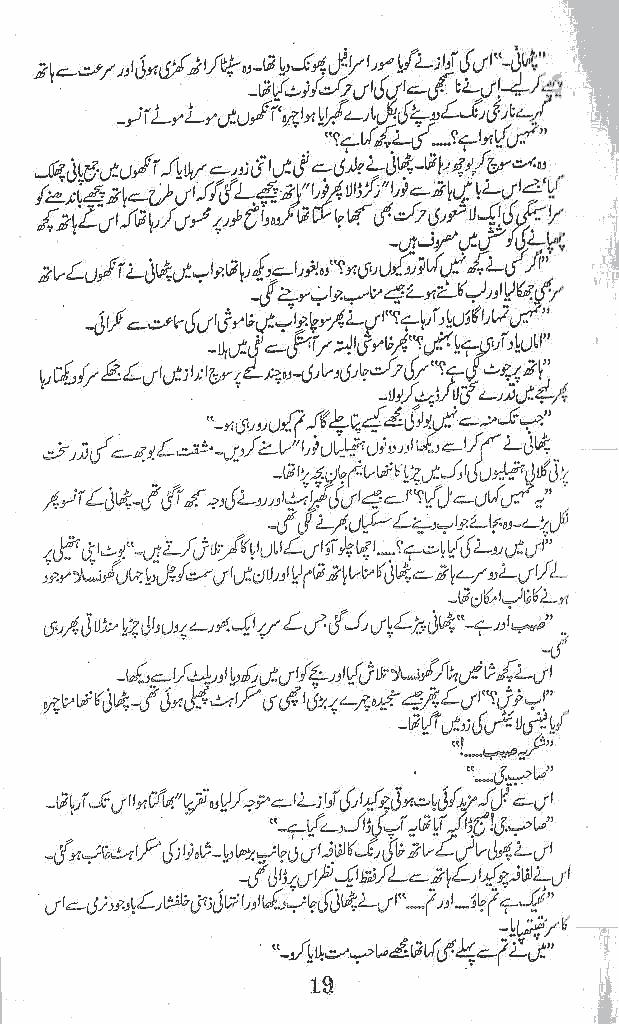 "پٹھانی۔" اس کی آواز نے گویا صور اسرافیل پھونک دیا تھا۔ وہ سٹپٹا کر اٹھ کھڑی ہوئی اور سرعت سے ہاتھ
لیے۔ اس نے ان سے بھیگی اس کی اس حرکت کو نوٹ کیا تھا۔
گہرے نارنجی رنگ کے دوپٹے کی بکل مارے گھبرایا ہوا چہرہ، آنکھوں میں موٹے موٹے آنسو۔
"تمہیں کیا ہوا ہے؟.....کسی نے کچھ کہا ہے؟"
وہ بہت سوچ کر پوچھ رہا تھا۔ پٹھانی نے جلدی سے نفی میں اتنی زور سے سر ہلایا کہ آنکھوں میں جمع پانی چھلک
گیا، جسے اس نے بائیں ہاتھ سے فوراً رگڑ ڈالا پھر فوراً ہاتھ پیچھے لے گئی گو کہ اس طرح سے ہاتھ پیچھے باندھنے کو
سراسیمگی کی ایک لاشعوری حرکت بھی سمجھا جا سکتا تھا مگر وہ واضح طور پر محسوس کر رہا تھا کہ اس کے ہاتھ کچھ
چھپانے کی کوشش میں مصروف ہیں۔
"اگر کسی نے کچھ نہیں کہا تو رو کیوں رہی ہو؟" وہ بغور اسے دیکھ رہا تھا جواب میں پٹھانی نے آنکھوں کے ساتھ
سر بھی جھکا لیا اور لب کاٹتے ہوئے جیسے مناسب جواب سوچنے لگی۔
"تمہیں تمہارا گاؤں یاد آ رہا ہے؟" اس نے پھر سوچا جواب میں خاموشی اس کی سماعت سے ٹکرائی۔
"اماں یاد آ رہی ہے یا بہنیں؟" پھر خاموشی البتہ سر آہستگی سے نفی میں ہلا۔
"ہاتھ پر چوٹ لگی ہے؟" سر کی حرکت جاری و ساری۔ وہ چند لمحے پرسوچ انداز میں اس کے جھکے سر کو دیکھتا رہا
پھر لہجے میں قدرے سختی لا کر ڈپٹ کر بولا۔
"جب تک منہ سے نہیں بولو گی مجھے کیسے پتا چلے گا کہ تم کیوں رو رہی ہو۔"
پٹھانی نے سہم کر اسے دیکھا اور دونوں ہتھیلیاں فوراً سامنے کر دیں۔ مشقت کے بوجھ سے کسی قدر سخت
پڑتی گلابی ہتھیلیوں کی اوک میں چڑیا کا ننھا سا نیم جان بچہ پڑا تھا۔
"یہ تمہیں کہاں سے مل گیا؟" اسے جیسے اس کی گھبراہٹ اور رونے کی وجہ سمجھ آ گئی تھی۔ پٹھانی کے آنسو پھر
نکل پڑے۔ وہ بجائے جواب دینے کے سسکیاں بھرنے لگی تھی۔
"اس میں رونے کی کیا بات ہے؟.....اچھا چلو آؤ اس کے اماں ابا کا گھر تلاش کرتے ہیں۔" بوٹ اپنی ہتھیلی پر
لے کر اس نے دوسرے ہاتھ سے پٹھانی کا ننھا سا ہاتھ تھام لیا اور لان میں اس سمت کو چل دیا جہاں گھونسلا موجود
ہونے کا غالب امکان تھا۔
"صبیب اور ہے۔" پٹھانی پیڑ کے پاس رک گئی جس کے سر پر ایک بھورے پروں والی چڑیا منڈلاتی پھر رہی
تھی۔
اس نے کچھ شاخیں ہٹا کر گھونسلا تلاش کیا اور بچے کو اس میں رکھ دیا اور پلٹ کر اسے دیکھا۔
"اب خوش؟" اس کے پتھر جیسے سنجیدہ چہرے پر بڑی اچھی سی مسکراہٹ پھیلی ہوئی تھی۔ پٹھانی کا ننھا سا چہرہ
گویا فیفٹی لائٹس کی زد میں آ گیا تھا۔
"شکریہ صبیب.....!"
"صاحب جی....."
اس سے قبل کہ مزید کوئی بات ہوتی چوکیدار کی آواز نے اسے متوجہ کر لیا وہ تقریباً بھاگتا ہوا اس تک آ رہا تھا۔
"صاحب جی! صبح ڈاکیہ آیا تھا یہ آپ کی ڈاک دے گیا ہے۔"
اس نے پھولی سانس کے ساتھ خاکی رنگ کا لفافہ اس کی جانب بڑھا دیا۔ شاہ نواز کی مسکراہٹ غائب ہو گئی۔
اس نے لفافہ چوکیدار کے ہاتھ سے لے کر فقط ایک نظر اس پر ڈالی تھی۔
"ٹھیک ہے تم جاؤ.....اور تم....." اس نے پٹھانی کی جانب دیکھا اور انتہائی ذہنی خلفشار کے باوجود نرمی سے اس
کا سر تھپتھپایا۔
"میں نے تم سے پہلے بھی کہا تھا مجھے صاحب مت بلایا کرو۔"
19